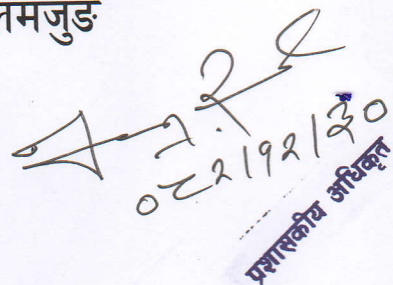 लमजुङ
०८२।१२।३०
प्रशासकीय अधिकृत